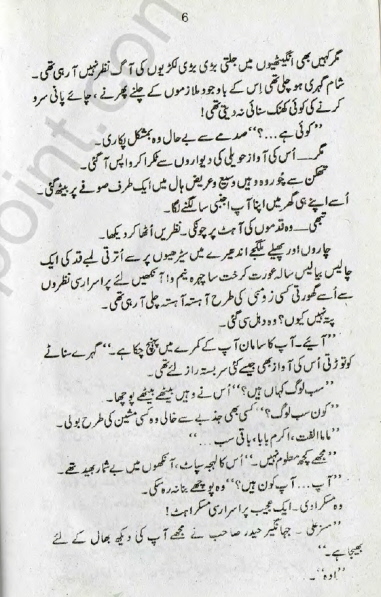 6
مگر کہیں بھی انگیٹھیوں میں جلتی بڑی بڑی لکڑیوں کی آگ نظر نہیں آ رہی تھی۔
شام گہری ہو چلی تھی اِس کے باوجود ملازموں کے چلنے پھرنے ، چائے پانی سرو
کرنے کی کوئی کھنک سنائی نہ دیتی تھی!
’’کوئی ہے ....؟‘‘ صدمے سے بے حال وہ بمشکل پکاری۔
مگر — اُس کی آواز حویلی کی دیواروں سے ٹکرا کر واپس آ گئی۔
تھکن سے چُور وہ وہیں وسیع و عریض ہال میں ایک طرف صوفے پر بیٹھ گئی۔
اُسے اپنے ہی گھر میں اپنا آپ اجنبی سا لگنے لگا۔
تبھی — وہ قدموں کی آہٹ پر چونکی۔ نظریں اُٹھا کر دیکھا۔
چاروں اور پھیلے ملگجے اندھیرے میں سیڑھیوں پر سے اُترتی لمبے قد کی ایک
چالیس بیالیس سالہ عورت کرخت سا چہرہ نیم وا آنکھیں لئے پراسرار سی نظروں
سے اُسے گھورتی کسی زومبی کی طرح آہستہ آہستہ چلی آ رہی تھی۔
پتہ نہیں کیوں؟ وہ دہل سی گئی۔
’’آیئے۔ آپ کا سامان آپ کے کمرے میں پہنچ چکا ہے۔‘‘ گہرے سناٹے
کو توڑتی اُس کی آواز بھی جیسے کئی سربستہ راز لئے تھی۔
’’سب لوگ کہاں ہیں؟‘‘ اُس نے وہیں بیٹھے بیٹھے پوچھا۔
’’کون سب لوگ؟‘‘ کسی بھی جذبے سے خالی وہ کسی مشین کی طرح بولی۔
’’ماما الفت، اکرم بابا، باقی سب ...‘‘
’’مجھے کچھ معلوم نہیں۔‘‘ اُس کا لہجہ سپاٹ، آنکھوں میں بے شمار بھید تھے۔
’’آپ ... آپ کون ہیں؟‘‘ وہ پوچھے بنا نہ رہ سکی۔
وہ مسکرا دی۔ ایک عجیب پراسرار سی مسکراہٹ!
’’مسز علی۔ جہانگیر حیدر صاحب نے مجھے آپ کی دیکھ بھال کے لئے
بھیجا ہے۔‘‘
’’اوہ‘‘۔
point.com